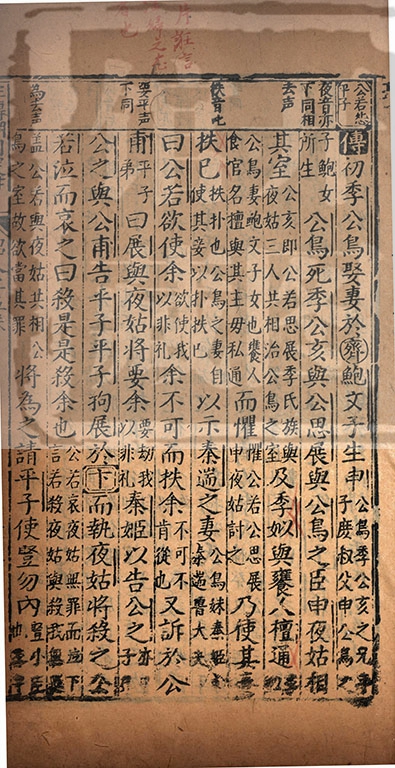 公若怨平子
夜音亦下同相去声
抶音
要平声下同
為去声
傳初季公鳥娶妻於齊鮑文子生申公鳥季公亥之兄平子庶叔父申公鳥之
子鮑女所生公鳥死季公亥與公思展與公鳥之臣申夜姑相
其室公亥即公若思展季氏族與夜姑三人共相治公鳥之室及季姒與饔人檀通季
公鳥妻鮑文子女也饔人食官名檀與其主毋私通而懼懼公若公思展申夜姑討之乃使其
抶已抶扑也公鳥之妻自使其妾以扑抶巳以示秦遄之妻公鳥妹秦姬秦遄魯大夫
曰公若欲使余欲使我以非礼余不可而抶余不可不肯從也又訴於公
甫平子弟曰展與夜姑將要余要劫我以非礼秦姬以告公之亦平子
公之與公甫告平子平子拘展於卞而執夜姑將殺之公
若泣而哀之曰殺是是殺余也公若哀夜姑無罪而泣下言若殺夜姑與殺我無異
蓋公若與夜姑共相公鳥之室故欲當其罪將為之請平子使豎勿內豎小臣也平子